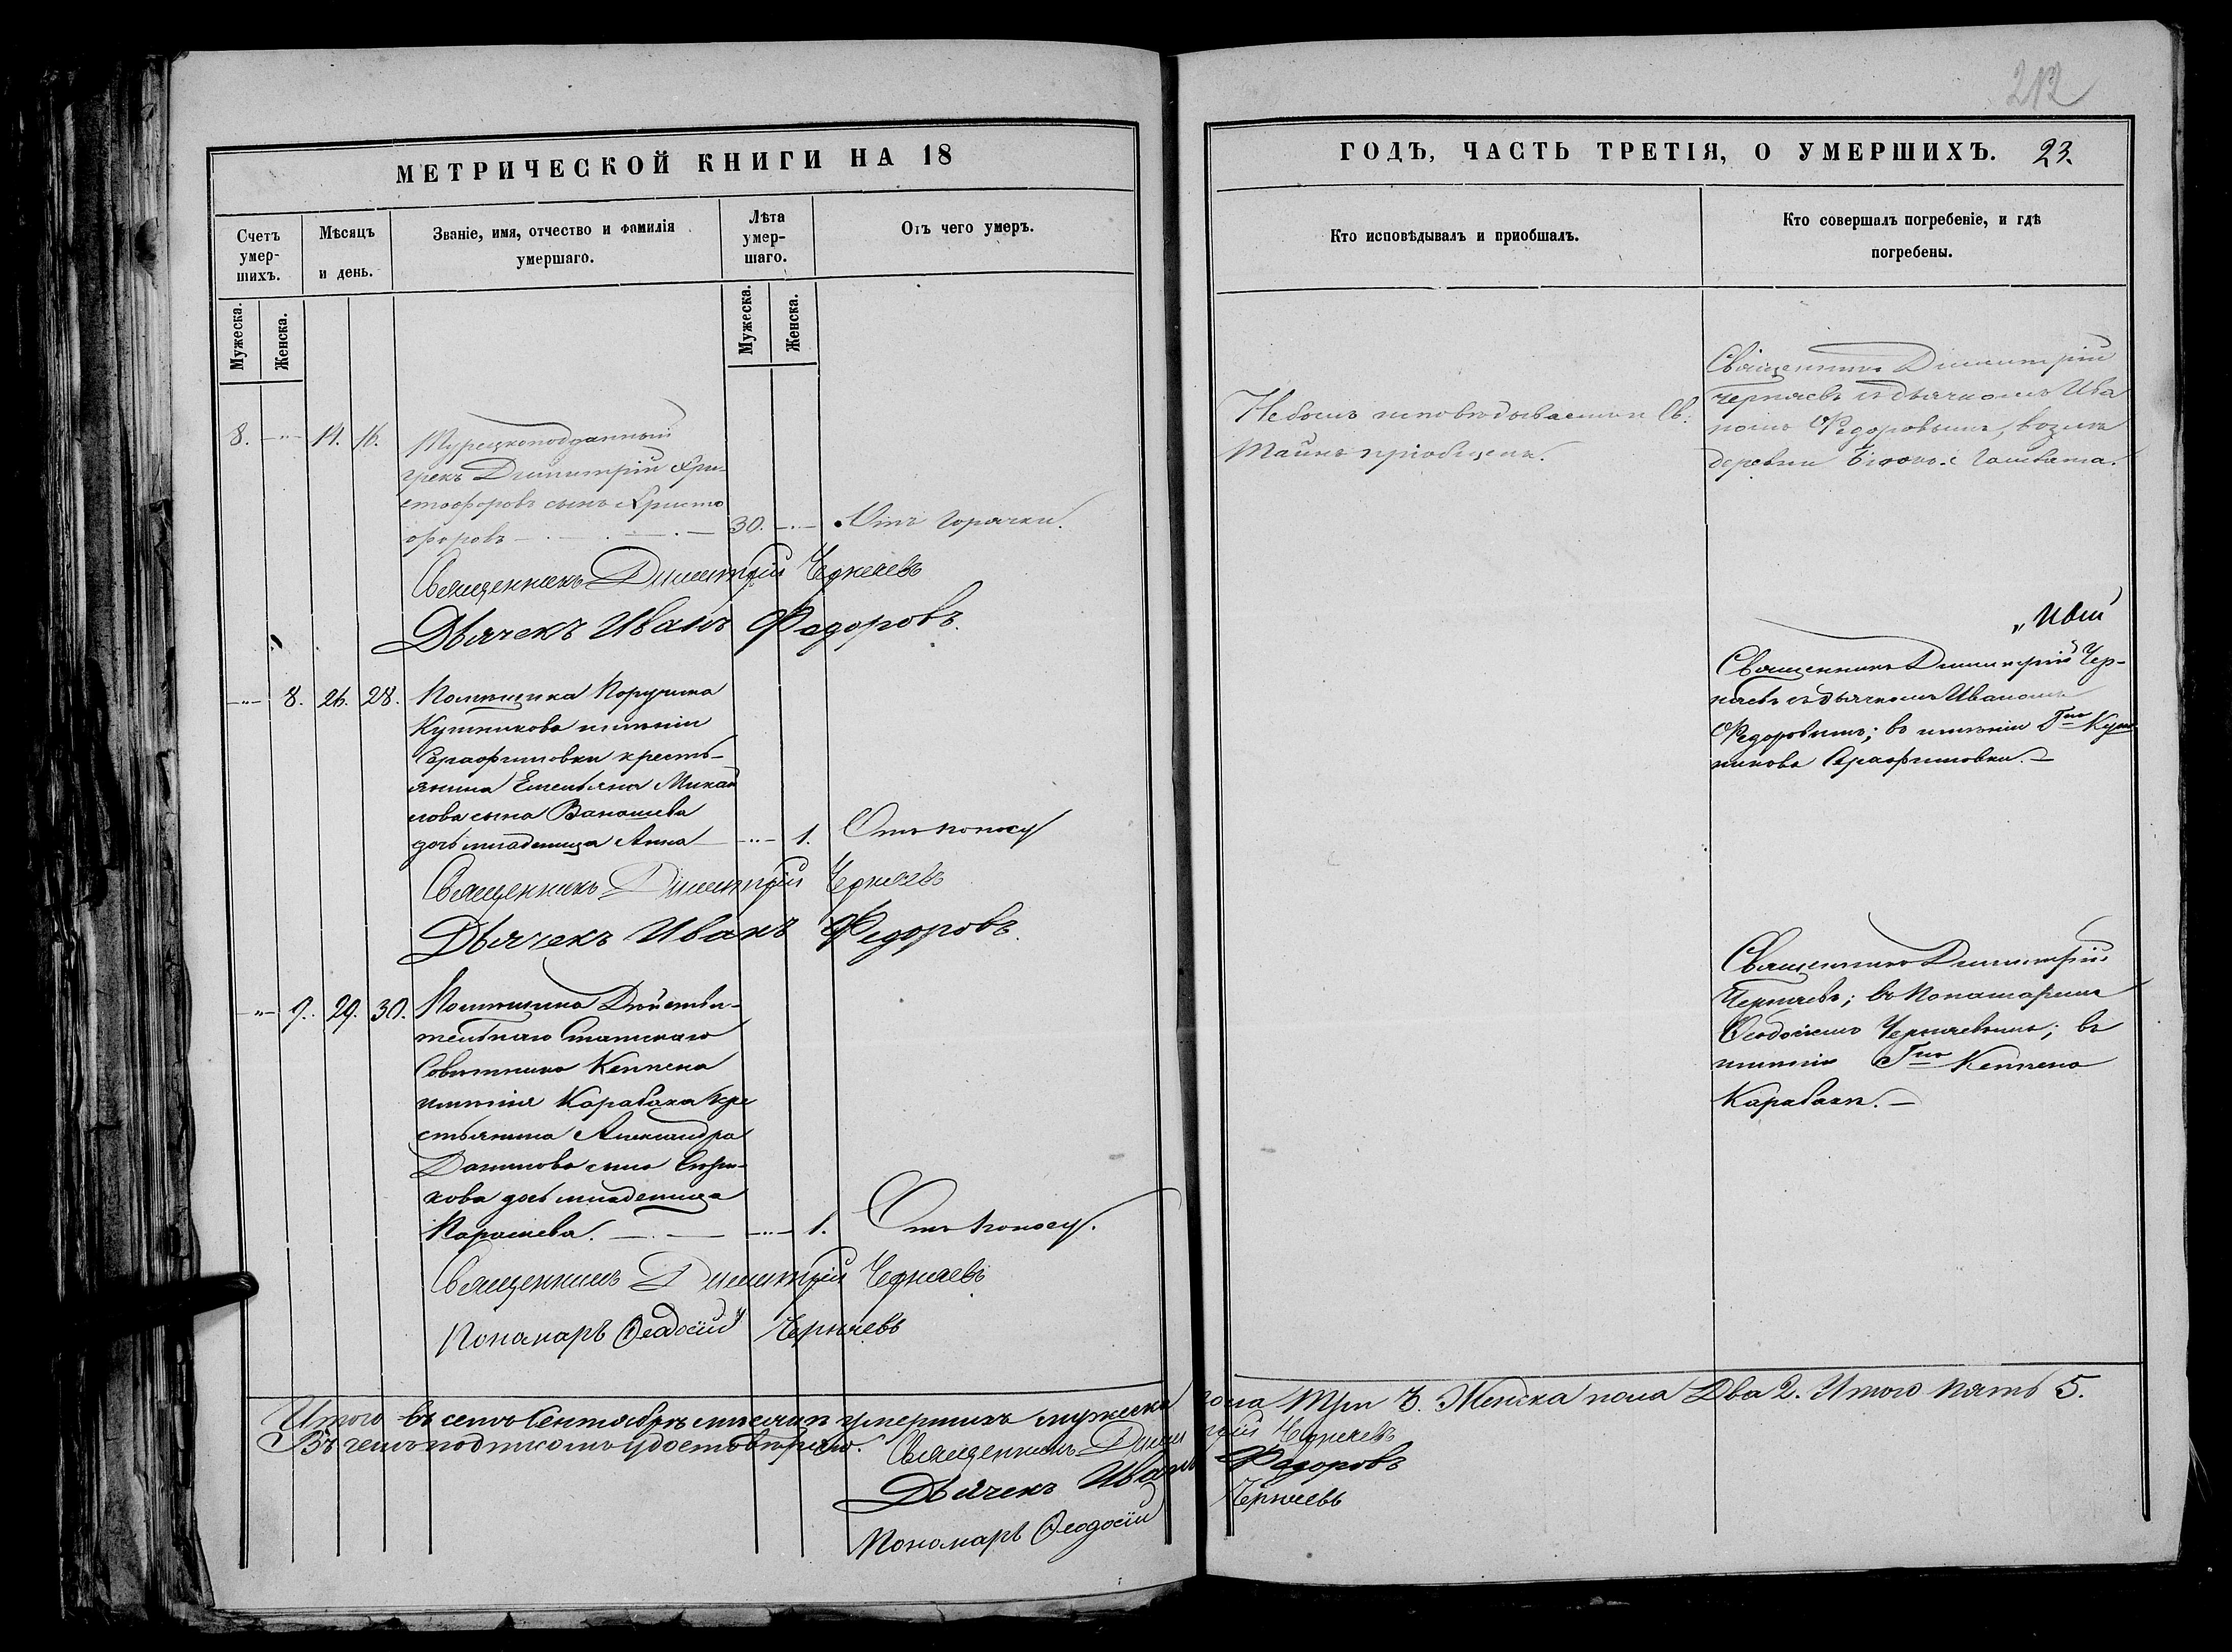 212
МЕТРИЧЕСКОЙ КНИГИ НА 18
ГОДЪ, ЧАСТЬ ТРЕТІЯ, О УМЕРШИХЪ. 23.
Счетъ умер-шихъ.
Мѣсяцъ и день.
Званіе, имя, отчество и фамилія умершаго.
Лѣта умер-шаго.
Отъ чего умеръ.
Кто исповѣдывалъ и пріобшалъ.
Кто совершалъ погребеніе, и гдѣ погребены.
Мужеска.
Женска.
Мужеска.
Женска.
8. 14. 16.
Турецкоподданный
грекъ Димитрій Хри-
стофоровъ сынъ Христо
форовъ 30. Отъ горячки.
Небылъ исповѣдываемъ и Св.
Таинъ пріобщенъ.
Священникъ Димитрій
Черняевъ съ дьячкомъ Ива
номъ Федоровымъ, возлѣ
деревни
Священникъ Димитрій Черняевъ
Дьячекъ Иванъ Федоровъ.
8. 26. 28. Помѣщика Поручика
Кушникова имѣнія
Серафимовки кресть-
янина Емельяна Михай
лова сына
дочь младеница Анна 1. Отъ поносу
Священникъ Димитрій Чер-
няевъ съ дьячкомъ Иваномъ
Федоровымъ; въ имѣніи Гна Куш
никова Серафимовки.
Священникъ Димитрій Черняевъ
Дьячекъ Иванъ Федоровъ.
9. 29. 30. Помѣщика Дѣйстви-
тельнаго Статскаго
Совѣтника Кеппена
имѣнія Карабаха кре
стьянина Александра
Данилова сына
кова дочь младеница
Параскева. 1. Отъ поносу.
Священникъ Димитрій
Черняевъ; съ Понамаремъ
Ѳеодосіемъ Черняевымъ; въ
имѣніи Гна Кеппена
Карабахѣ.
Священникъ Димитрій Черняевъ
Понамарь Ѳеодосій Черняевъ
Итого въ семъ Сентябрѣ мѣсяцѣ умершихъ мужеска пола Три 3. Женска пола Два 2. Итого пять 5.
Въ чемъ подпискою удостовѣряю. Священникъ Димитрій Черняевъ
Дьячекъ Иванъ Федоровъ
Пономарь Ѳеодосій Черняевъ